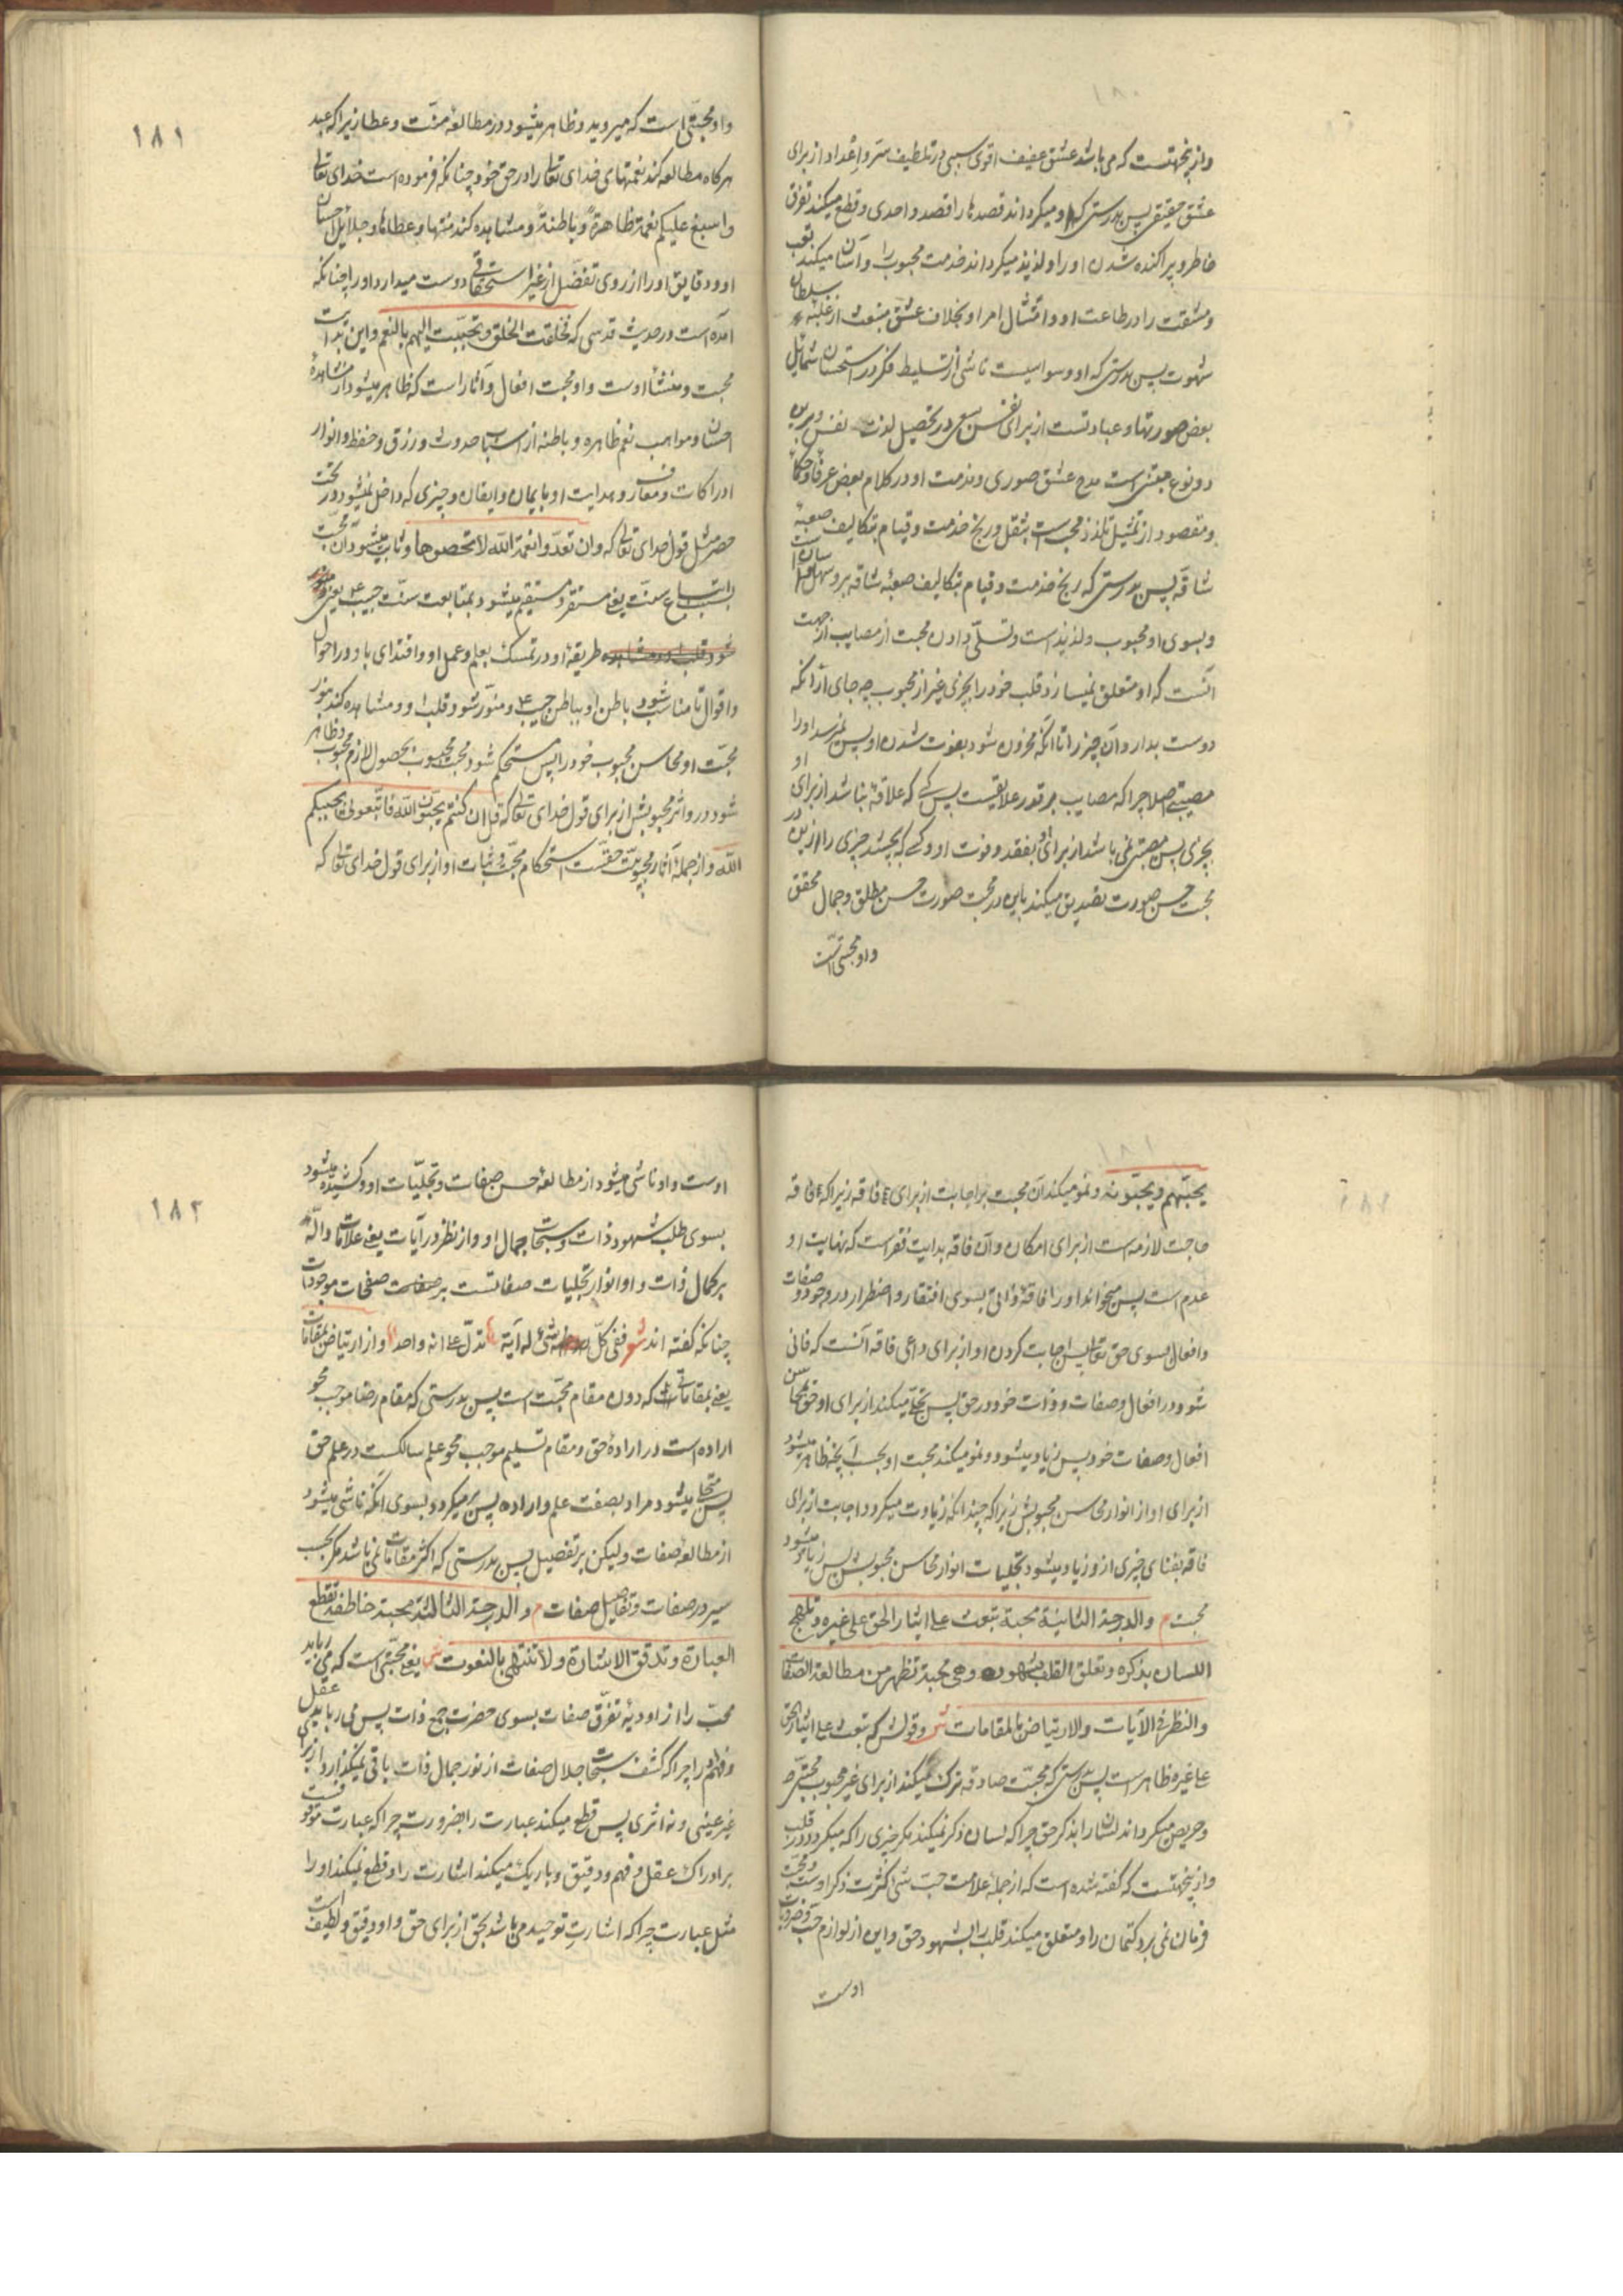 وازینجهتست که می باشد عشق عفیف اقوی سببی در تلطیف سرّ و اِعداد او از برای
عشق حقیقی پس بدرستی که او میکرداند قصدها را قصد واحدی و قطع میکند تفرق
خاطر و پراکنده شدن او را و لذیذ میکرداند خدمت محبوب را و آسان میکند تعب
و مشقت را در طاعت او و امتثال امر او بخلاف عشق منبعث از غلبهٔ سلطان
شهوت پس بدرستی که او وسواسیست ناشی از تسلیط فکر در استحسان شمایل
بعض صورتها و عبادتست از برای نفس بسعی در تحصیل لذت نفس و برین
دو نوع مبتنی است مدح عشق صوری و مذمت او در کلام بعض عرفا و حکما
و مقصود از تمثیل تلذذ محب است بثقل و رنج خدمت و قیام بتکالیف صعبهٔ
شاقه پس بدرستی که رنج خدمت و قیام بتکالیف صعبهٔ شاقه برو سهل و آسان است
و بسوی او محبوب و لذیذ است و تسلّی دادن محبت از مصایب از جهت
آنست که او متعلق نمیسازد قلب خود را بچیزی غیر از محبوب چه جای از آنکه
دوست بدارد آن چیز را تا آنکه محزون شود بفوت شدن او پس نمیرسد او را
مصیبتی اصلا چرا که مصایب بر قدر علایقست پس کسی که علاقه نباشد از برای او
بچیزی پس مصیبتی نمی باشد از برای او بفقد و فوت او و کسی که بچشد چیزی را از لذت
محبت حسن صورت تصدیق میکند باین در محبت صورت حسن مطلق و جمال محقق
و او محبتی است
۱۸۱
و او محبتی است که میروید و ظاهر میشود در مطالعهٔ منّت و عطا زیرا که عبد
هرکاه مطالعه کند نعمتهای خدای تعالی را در حق خود چنانکه فرموده است خدای تعالی
و اسبغ علیکم نعمه ظاهرة و باطنة و مشاهده کند منتها و عطاها و جلایل احسان
او و دقایق او را از روی تفضّل از غیر استحقاقی دوست میدارد او را چنانکه
آمده است در حدیث قدسی که فخلقت الخلق و تحبّبت الیهم بالنعم و این بدایت
محبت و منشأ اوست و او محبت افعال و آثار است که ظاهر میشود از مشاهدهٔ
احسان و مواهب نعم ظاهره و باطنه از اسباب حدوث و رزق و حفظ و انوار
ادراکات و معارف و هدایت او بایمان و ایقان و چیزی که داخل نمیشود در تحت
حصر مثل قول خدای تعالی که و ان تعدّوا نعمة اللّه لا تحصوها و ثابت میشود آن محبت
باتباع سنّت یعنی مستقر و مستقیم میشود بمتابعت سنّت حبیب ع یعنی
طریقهٔ او در تمسک بعلم و عمل او و اقتدای باو در احوال
و اقوال تا مناسب شود باطن او بباطن حبیب ع و منوّر شود قلب او و مشاهده کند بنور
محبّت او محاسن محبوب خود را پس مستحکم شود محبت محبوب بحصول لازم محبوب و ظاهر
شود در و اثر محبوبش از برای قول خدای تعالی که قل ان کنتم تحبّون اللّه فاتّبعونی یحببکم
اللّه و از جملهٔ آثار محبوبیّت حقست استحکام محبّت و ثبات او از برای قول خدای تعالی که
۱۸۱
یحبّهم و یحبّونه و نمو میکند آن محبت بر اجابت از برای فاقه زیرا که فاقه
حاجت لازمه است از برای امکان و آن فاقه بدایت فقر است که نهایت او
عدم است پس میخواند او را فاقهٔ ذاتی بسوی افتقار و اضطرار در وجود و صفات
و افعال بسوی حق تعالی پس اجابت کردن او از برای داعی فاقه آنست که فانی
شود در افعال و صفات و ذات خود در حق پس تجلّی میکند از برای او حق بمحاسن
افعال و صفات خود پس زیاد میشود و نمو میکند محبت او بحسب آنچه ظاهر میشود
از برای او از انوار محاسن محبوبش زیرا که چندانکه زیادت میکردد اجابت از برای
فاقه بفنای چیزی ازو زیاد میشود تجلیات انوار محاسن محبوبش پس زیاد میشود
محبت م والدرجة الثانیة محبة تبعث علی ایثار الحق علی غیره و تلهج
اللسان بذکره و تعلق القلب بشهوده و هی محبة تظهر من مطالعة الصفات
و النظر فی الآیات و الارتیاض بالمقامات ش و قولش که تبعث علی ایثار الحق
علی غیره ظاهر است پس بدرستی که محبّت صادقه ترک میکند از برای غیر محبوب محبتی
و حریص میکرداند لسان را بذکر حق چرا که لسان ذکر نمیکند مکر چیزی را که میکردد در قلب
و ازینجهتست که گفته شده است که از جملهٔ علامت حبّ شی کثرت ذکر اوست و محبّت
فرمان نمی برد کتمان را و متعلق میکند قلب را بشهود حق و این از لوازم حبّ و ضروریات
اوست
۱۸۲
اوست و او ناشی میشود از مطالعهٔ حسن صفات و تجلّیات او و کشیده میشود
بسوی طلب شهود ذات و سبحات جمال او و از نظر در آیات یعنی علامات دالّه
بر کمال ذات و او انوار تجلیات صفاتست بر صفحات موجودات
چنانکه گفته اند شعر ففی کلّ شیٔ له آیة تدلّ علی انه واحد و از ارتیاض بمقامات
یعنی بمقاماتی که دون مقام محبّت است پس بدرستی که مقام رضا موجب محو
اراده است در ارادهٔ حق و مقام تسلیم موجب محو علم سالکست در علم حق
پس متجلی میشود مر او را بصفت علم و اراده پس برمیکردد بسوی آنکه ناشی میشود
از مطالعهٔ صفات و لیکن بر تفصیل پس بدرستی که اکثر مقامات نمی باشد مکر بحسب
سیر در صفات و تفاصیل صفات م والدرجة الثالثة محبة خاطفة تقطع
العبارة و تدقق الاشارة و لا تنتهی بالنعوت ش یعنی محبّتی است که می رباید
محبّ را از اودیهٔ تفرّق صفات بسوی حضرت جمع ذات پس می رباید عقل
و فهم را چرا که کشف سبحات جلال صفات از نور جمال ذات باقی نمیکذارد از برای
غیر عینی و نه اثری پس قطع میکند عبارت را بضرورت چرا که عبارت موقوفست
بر ادراک عقل و فهم و دقیق و باریک میکند اشارت را و قطع نمیکند او را
مثل عبارت چرا که اشارتِ توحید می باشد بحق از برای حق و او دقیق و لطیف است